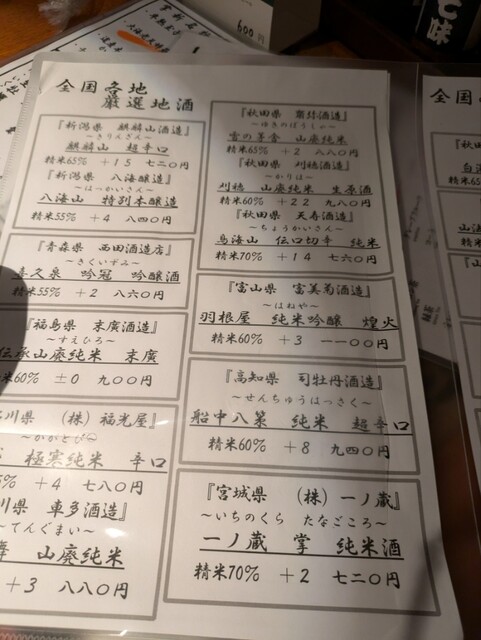 全国各地
厳選地酒
『新潟県 麒麟山酒造』
～きりんざん～
麒麟山 超辛口
精米65% +15 七二〇円
『新潟県 八海醸造』
～はっかいさん～
八海山 特別本醸造
精米55% +4 八四〇円
『青森県 西田酒造店』
～きくいずみ～
喜久泉 吟冠 吟醸酒
精米55% +2 八六〇円
『福島県 末廣酒造』
～すえひろ～
伝承山廃純米 末廣
精米60% ±0 九〇〇円
川県 (株)福光屋』
～かがとび～
極寒純米 辛口
5% +4 七八〇円
川県 車多酒造』
～てんぐまい～
舞 山廃純米
+3 八八〇円
『秋田県 齋彌酒造』
～ゆきのぼうしゃ～
雪の茅舎 山廃純米
精米65% +2 八八〇円
『秋田県 刈穂酒造』
～かりほ～
刈穂 山廃純米 生原酒
精米60% +22 九八〇円
『秋田県 天寿酒造』
～ちょうかいさん～
鳥海山 伝口切辛 純米
精米70% +14 七六〇円
『富山県 富美菊酒造』
～はねや～
羽根屋 純米吟醸 煌火
精米60% +3 一一〇〇円
『高知県 司牡丹酒造』
～せんちゅうはっさく～
船中八策 純米 超辛口
精米60% +8 九四〇円
『宮城県 (株)一ノ蔵』
～いちのくら たなごころ～
一ノ蔵 掌 純米酒
精米70% +2 七二〇円
全国
600円
七味